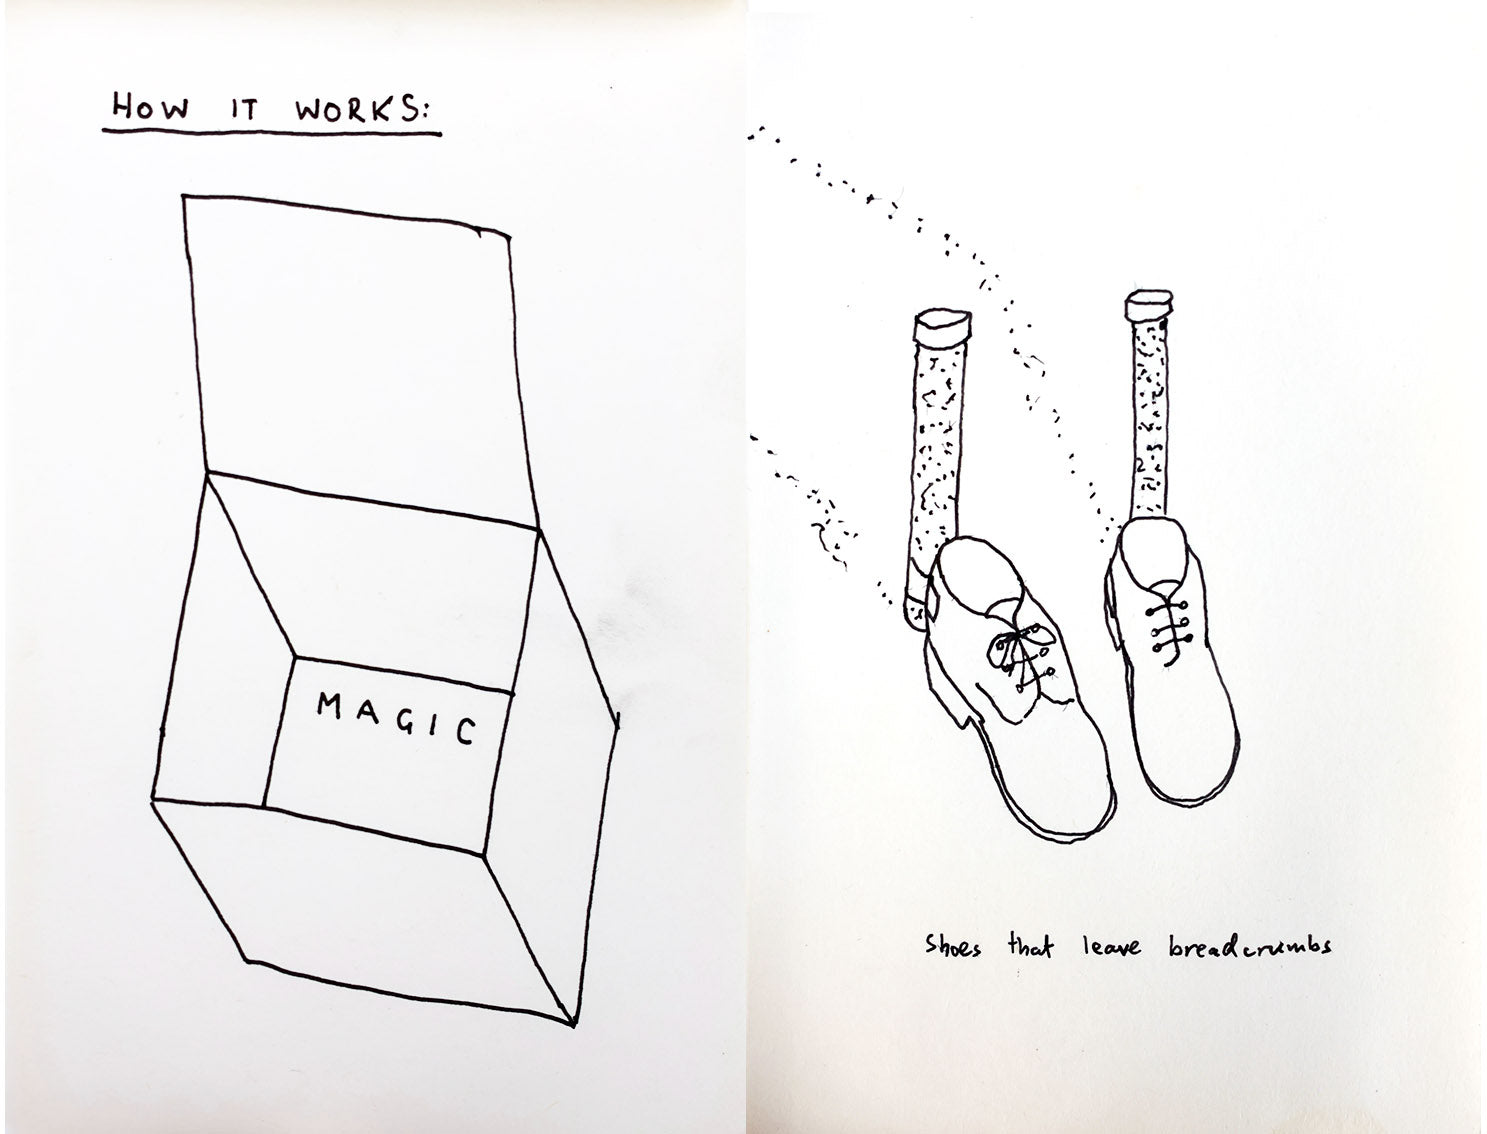 HOW IT WORKS:
MAGIC
shoes that leave breadcrumbs